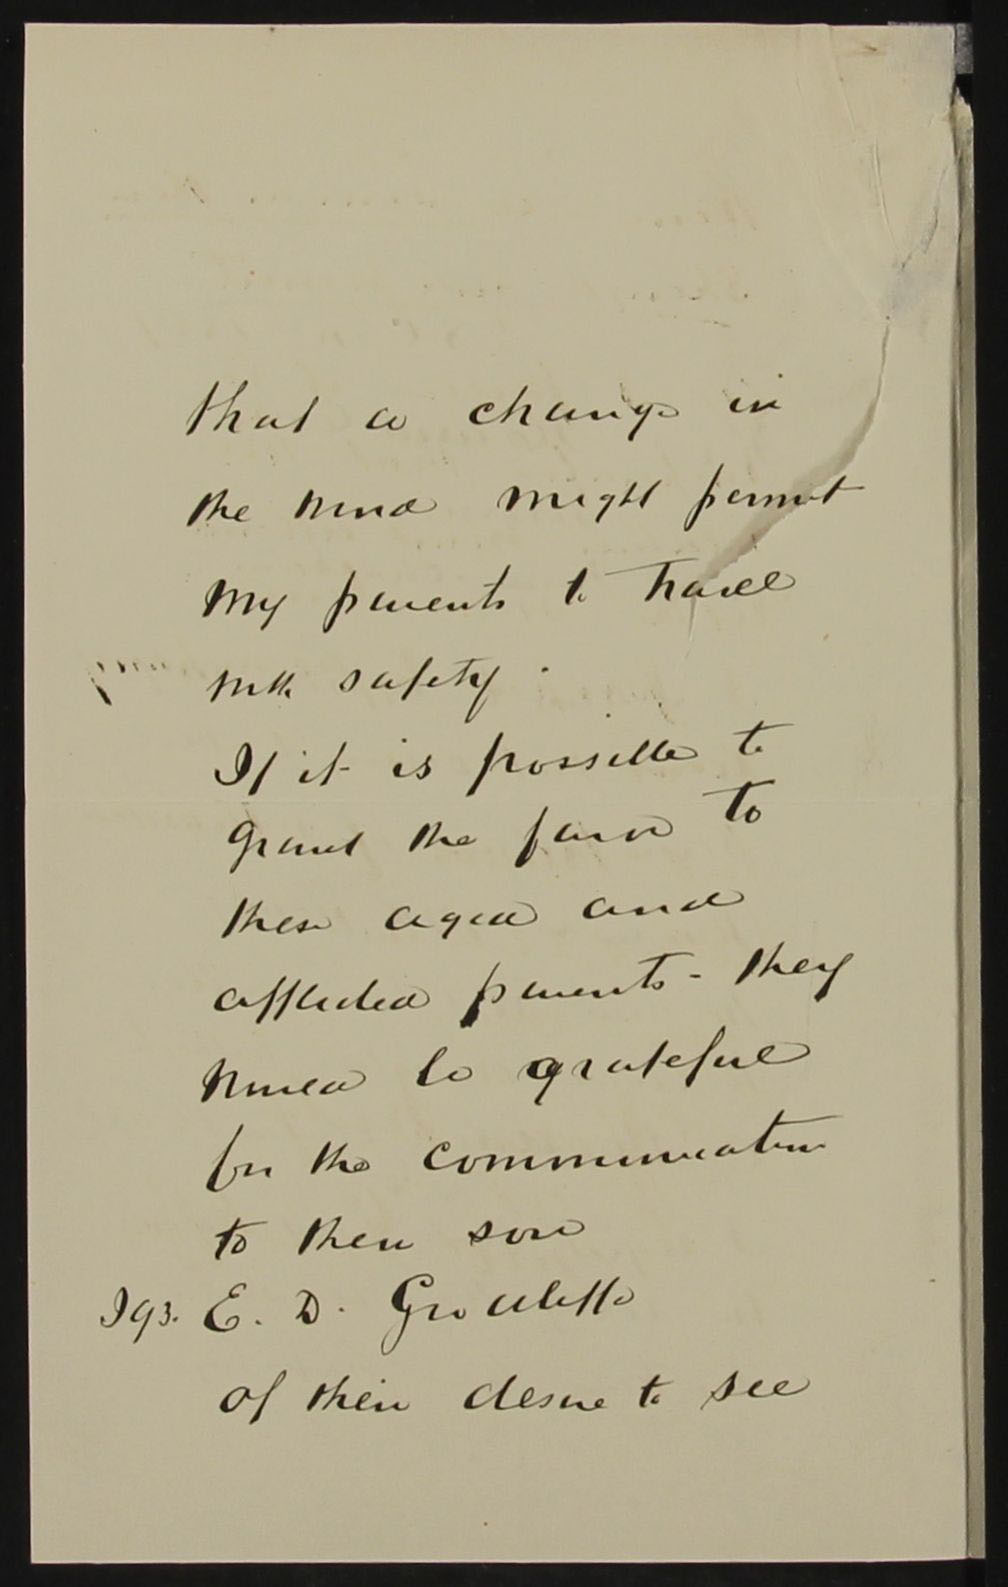 that a change in
the wind might permit
my parents to travel
with safety.
If it is possible to
grant the favor to
these aged and
afflicted parents - they
would be grateful
for the communication
to their son
E. D.
of their desire to see